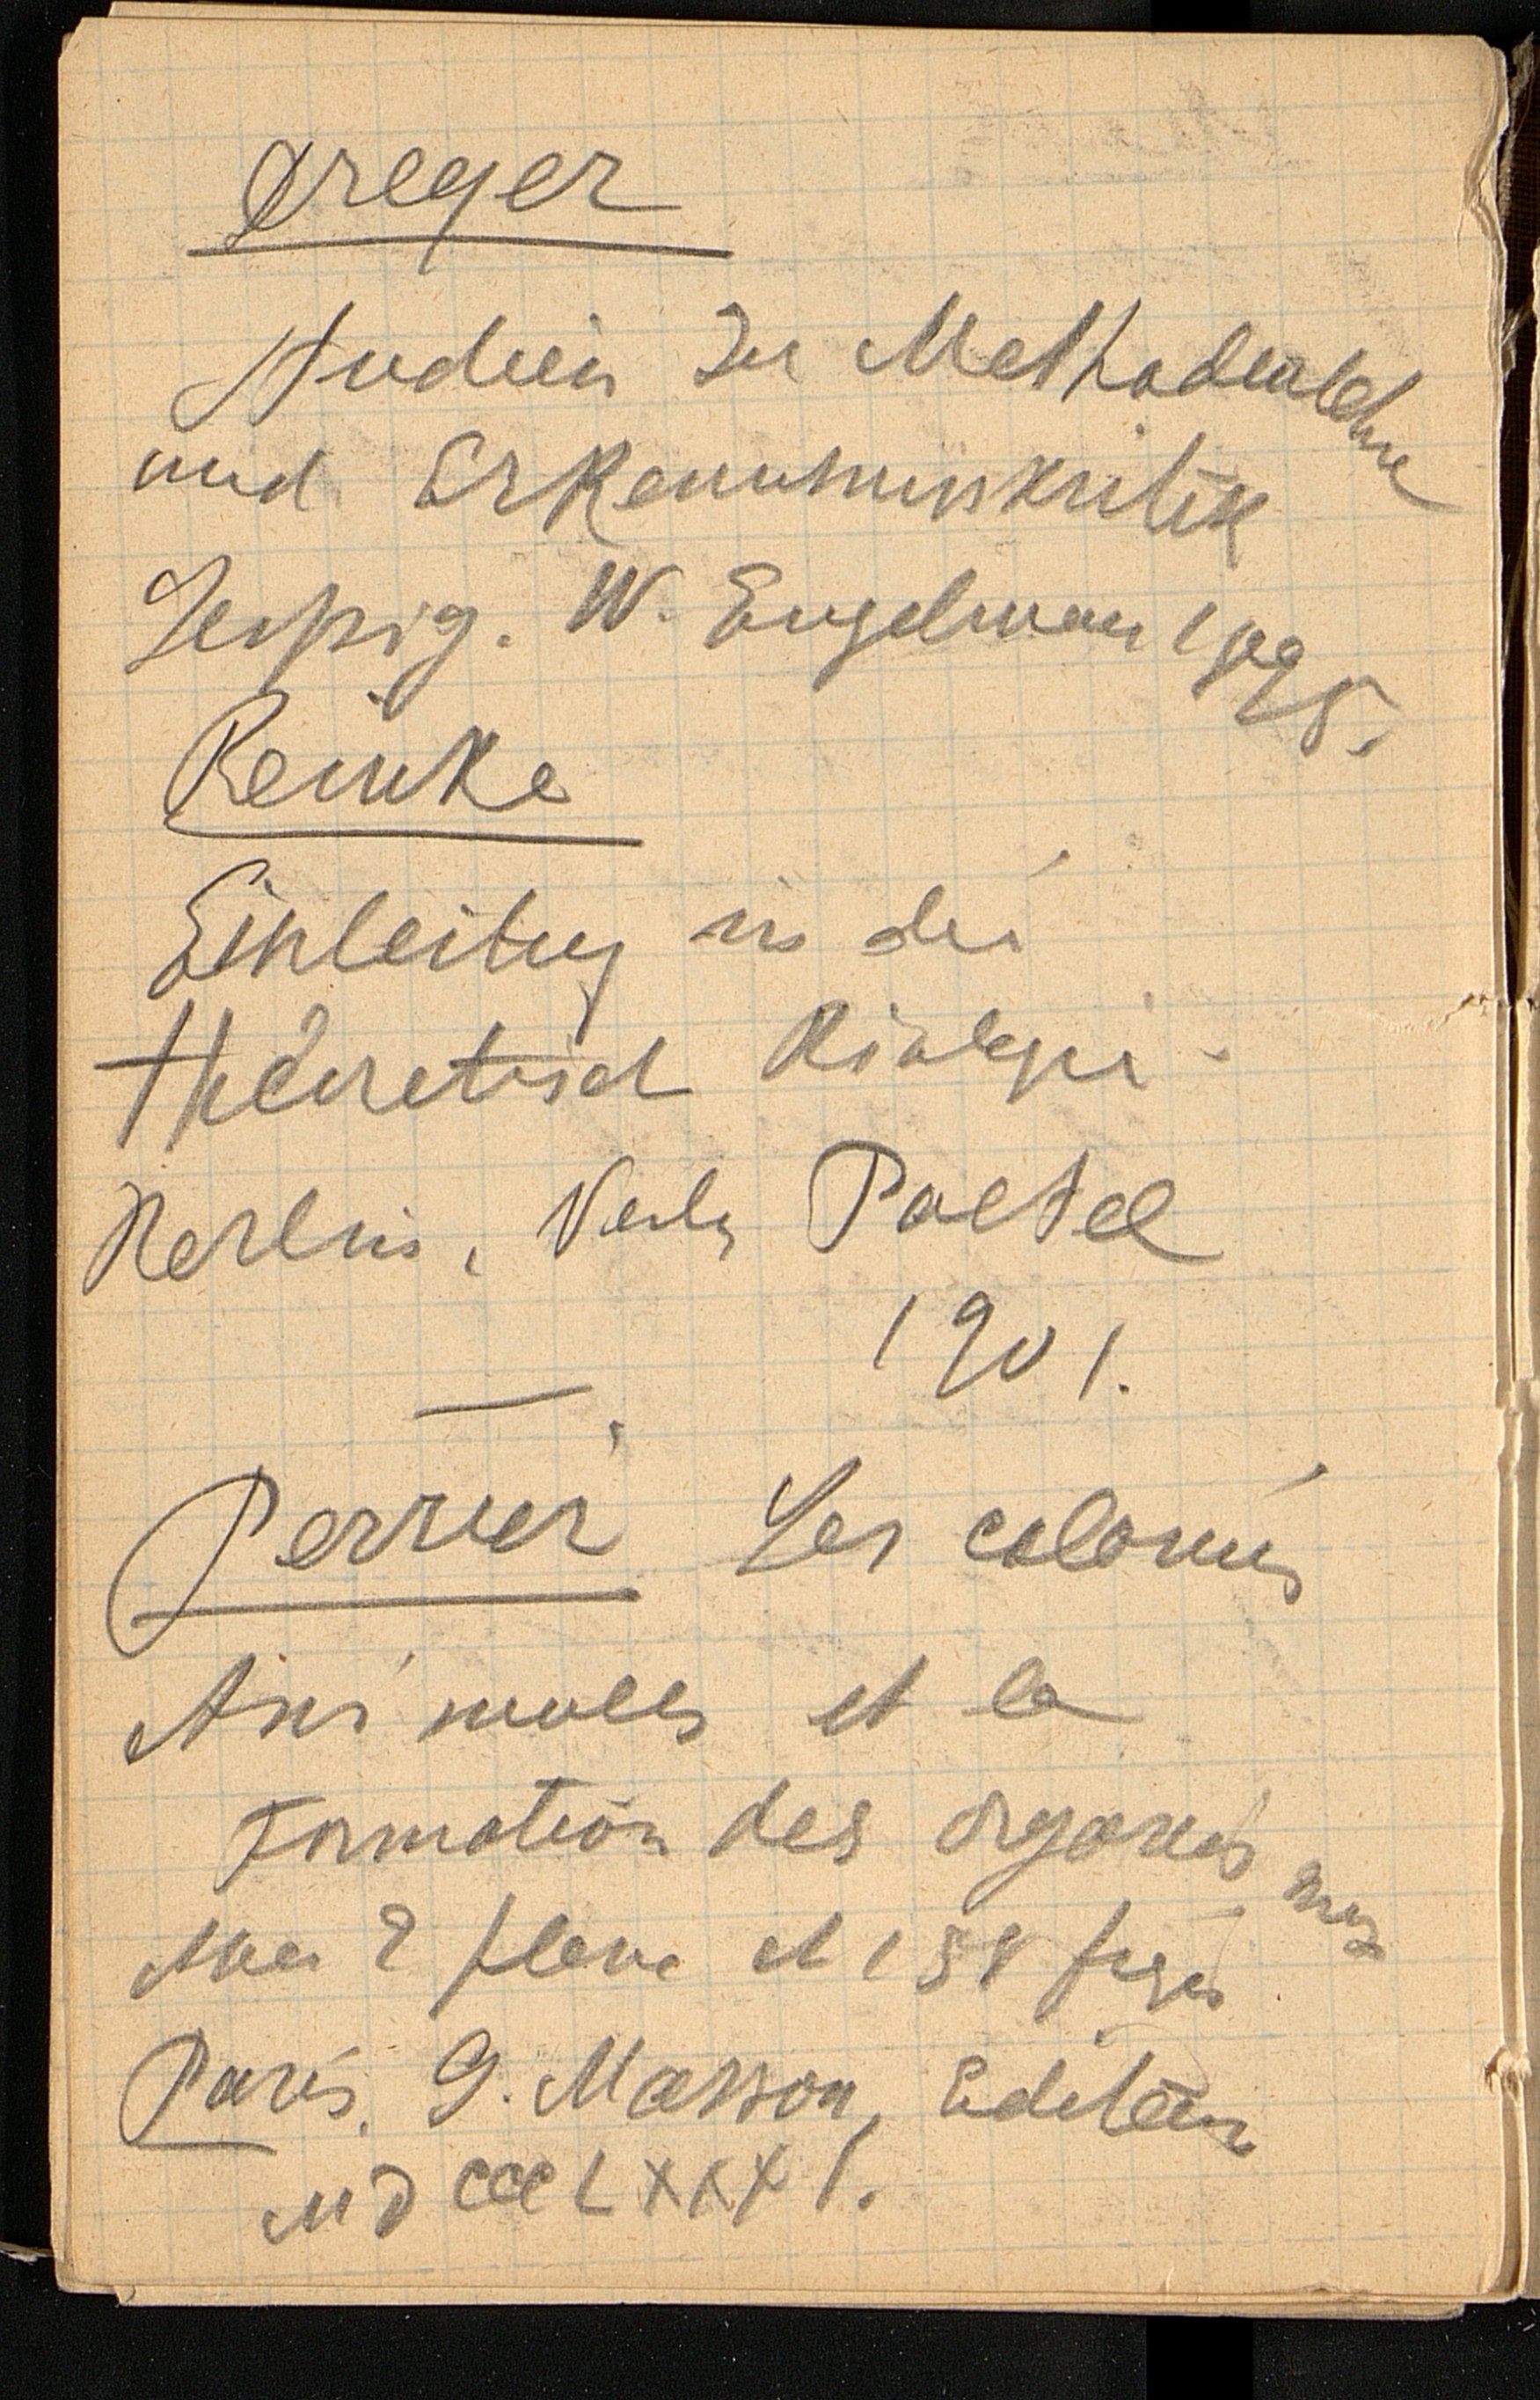 Dreyer
Studien zu Methodenlehre
und Erkenntnisskritik
Leipzig. W. Engelman 1895.
Reinke
Einleitug in die
theoretisch Biologie.
Berlin, Verlg Paetel
1901.
Perrier Les colonies
Animales et la
Formation des organis
mes
Avec 2 planc et 158 figs
Paris. G. Masson, Editeur
MDCCCLXXXI.